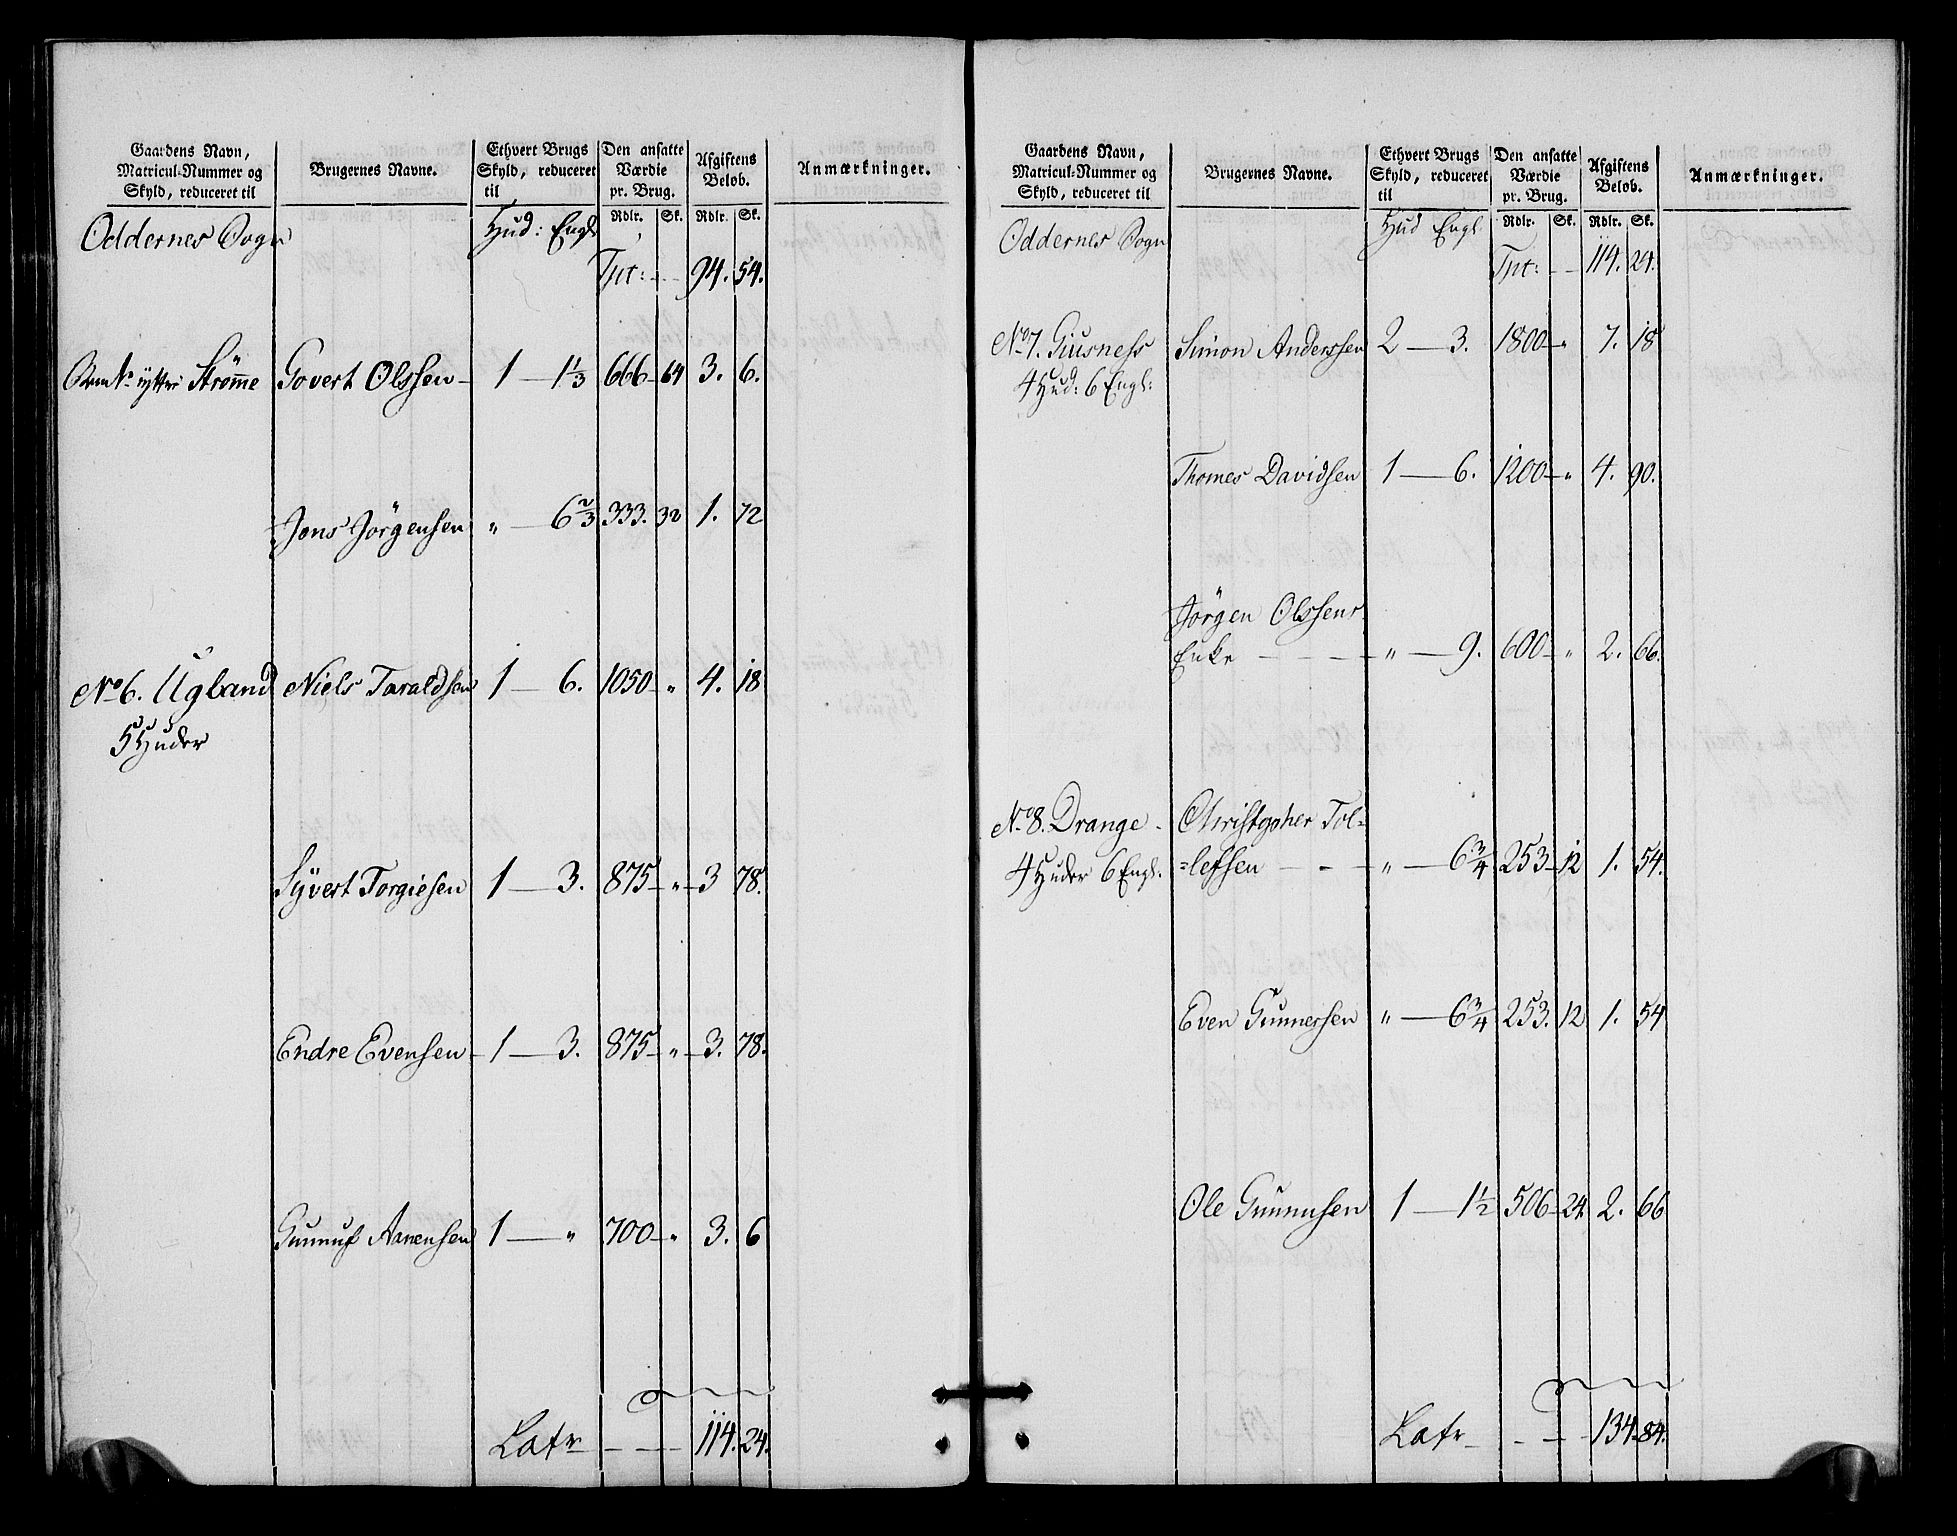 Gaardens Navn, Matricul-Nummer og Skyld, reduceret til | Brugernes Navne. | Ethvert Brugs Skyld, reduceret til | Den ansatte Værdie pr. Brug. | Afgiftens Beløb. | Anmærkninger.
Oddernes Sogn | Hud: Engl | Rdlr. | Sk. | Rdlr. | Sk.
Tpt: — 94. 54.
ÿttre Strømme | Govert Olssen | 1 — 1 1/3 | 666 — 64 | 3. 6.
Jens Jörgensen | " — 6 2/3 | 333. 32 | 1. 72
No 6. Ugland | Niels Taraldsen | 1 — 6. | 1050 — " | 4. 18
5 Huder
Syvert Torgiesen | 1 — 3. | 875 — " | 3 78.
Endre Evensen | 1 — 3. | 875 — " | 3. 78.
Gunnuf Aanensen | 1 — " | 700 — " | 3. 6
Latr — 114. 24.
Gaardens Navn, Matricul-Nummer og Skyld, reduceret til | Brugernes Navne. | Ethvert Brugs Skyld, reduceret til | Den ansatte Værdie pr. Brug. | Afgiftens Beløb. | Anmærkninger.
Oddernes Sogn | Hud Engl | Rdlr. | Sk. | Rdlr. | Sk.
Tpt: — 114. 24.
No 7. Giusness | Simon Anderssen | 2 — 3. | 1800 — " | 7. 18
4 Hud: 6 Engl:
Thomes Davidsen | 1 — 6. | 1200 — " | 4. 90.
Jörgen Olssens
Enke — " — 9. | 600 — " | 2. 66.
No 8. Drange | Christopher Tol=
4 Huder 6 Engl. | =lefsen — " — 6 3/4 | 253 — 12 | 1. 54.
Even Gunnersen | " — 6 3/4 | 253. 12 | 1. 54
Ole Gunnusen | 1 — 1 1/2 | 506 — 24 | 2. 66
Latr — 134. 84.